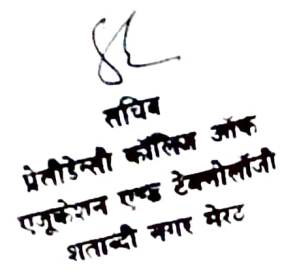 सचिव
प्रेसीडेन्सी कॉलिज ऑफ
एजूकेशन एण्ड टेक्नोलॉजी
शताब्दी नगर मेरठ